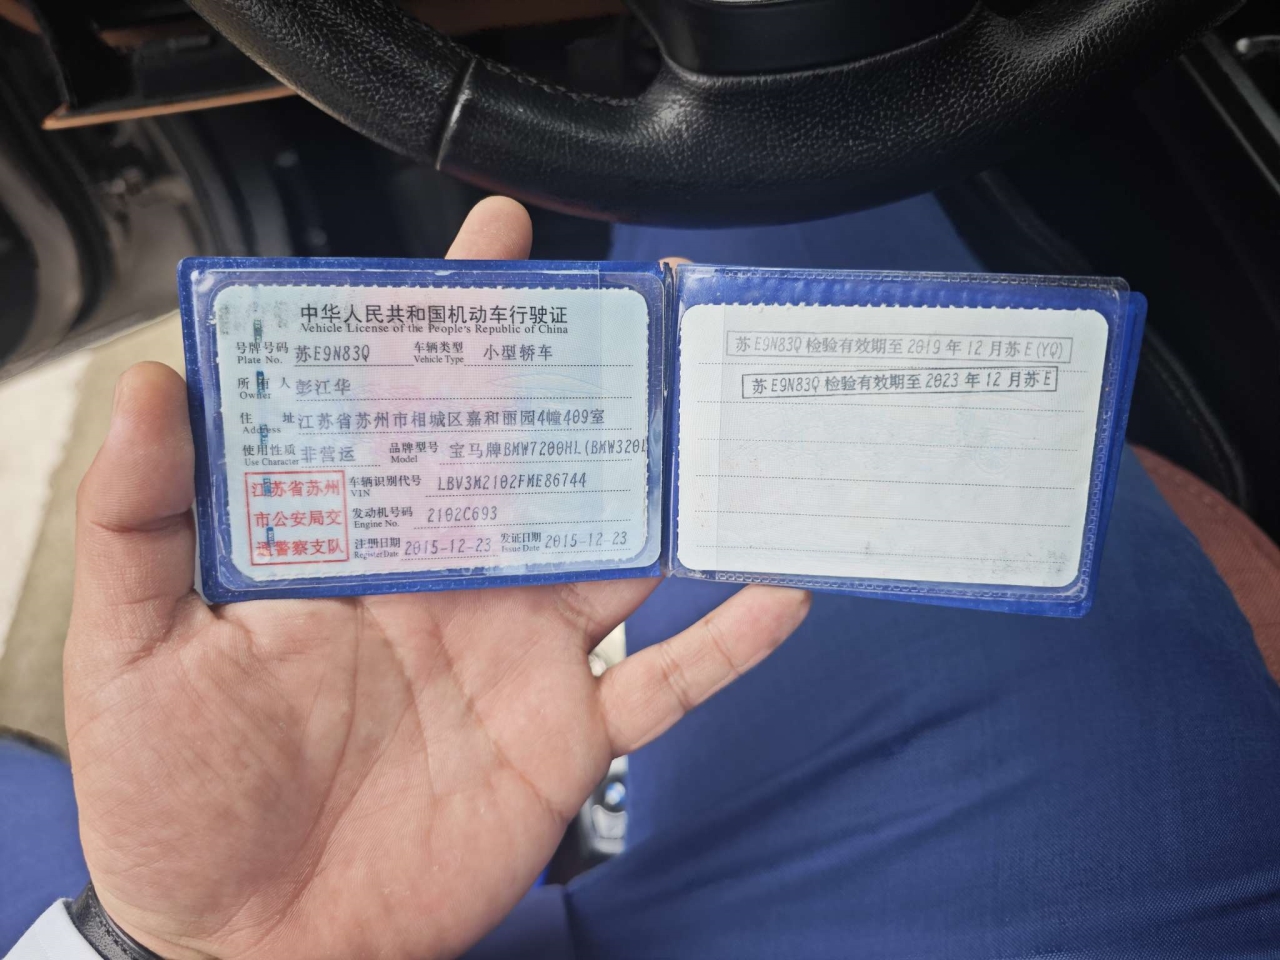 中华人民共和国机动车行驶证
Vehicle License of the People's Republic of China
号牌号码 苏E9N83Q 车辆类型 小型轿车
Plate No. Vehicle Type
所有人 彭江华
Owner
住址 江苏省苏州市相城区嘉和丽园4幢409室
Address
使用性质 非营运 品牌型号 宝马牌BMW7200HL(BMW320L
Use Character Model
江苏省苏州
市公安局交
通警察支队
车辆识别代号 LBV3M2102FME86744
VIN
发动机号码 2102C693
Engine No.
注册日期 2015-12-23 发证日期 2015-12-23
Register Date Issue Date
苏E9N83Q 检验有效期至 2019 年 12 月苏 E(YQ)
苏E9N83Q 检验有效期至 2023 年 12 月苏E